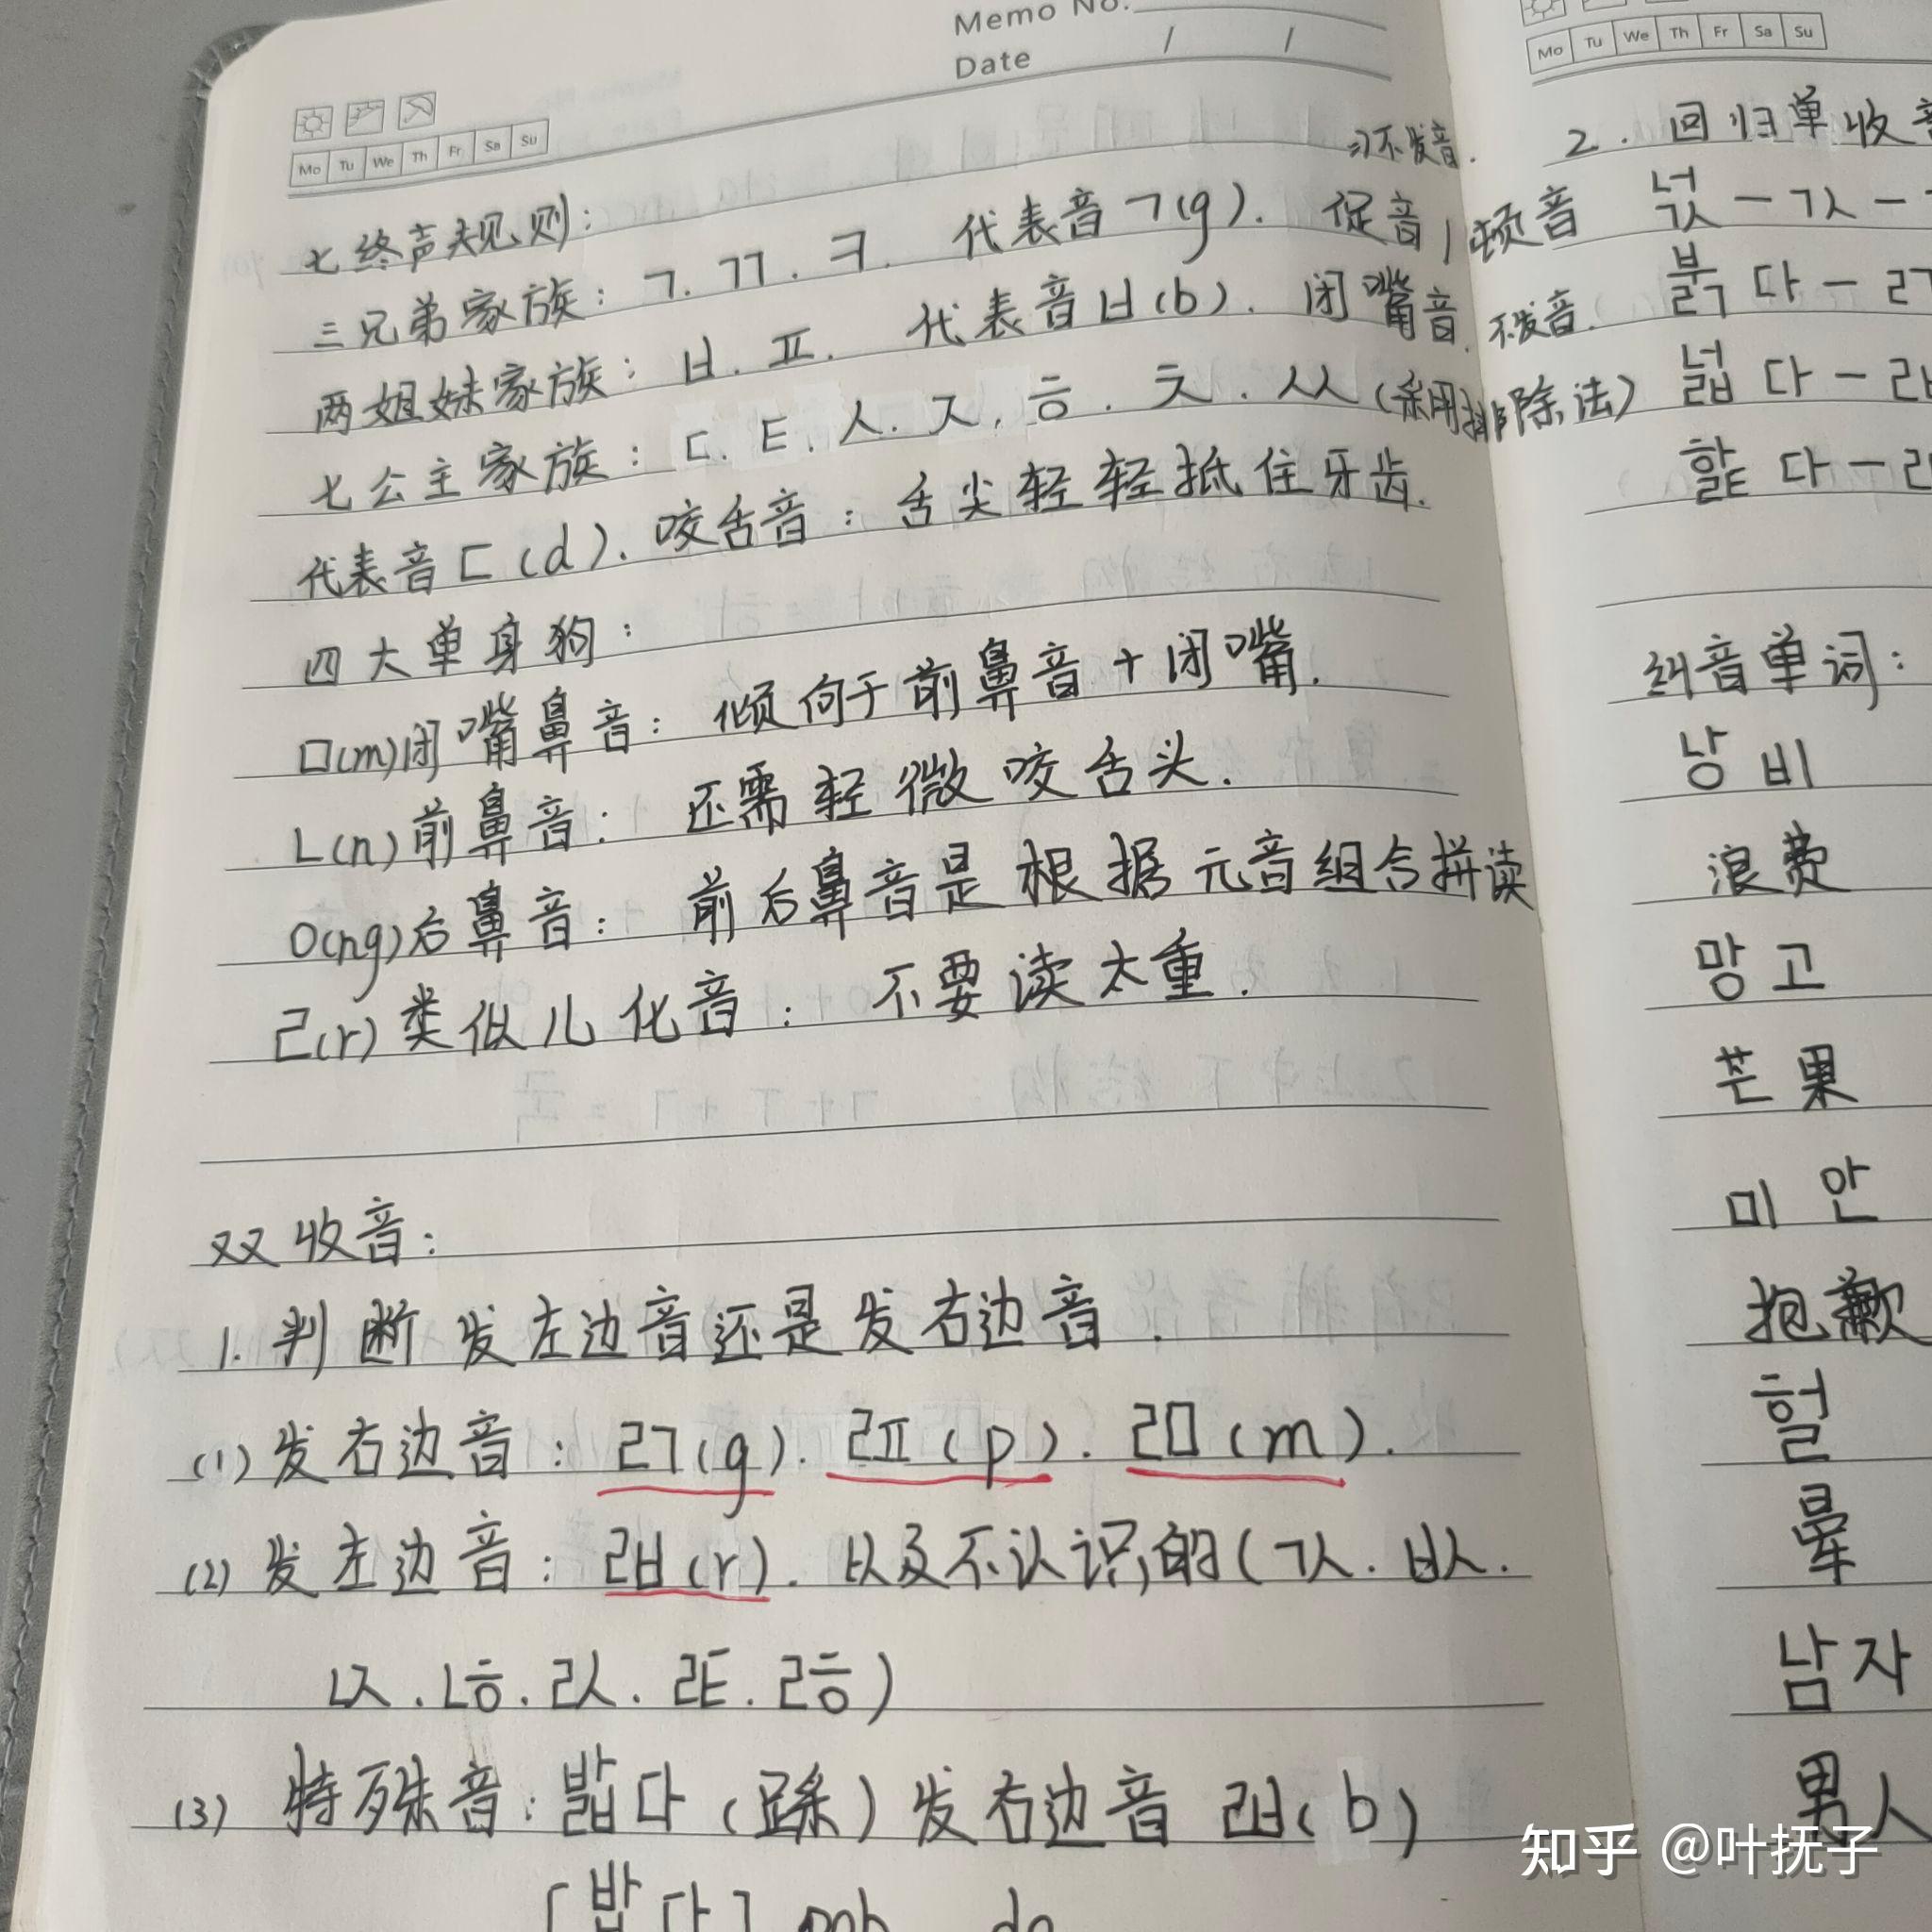 Memo No.
Date / /
Mo Tu We Th Fr Sa Su
七终声规则:
⇒不发音.
三兄弟家族: ㄱ. ㄲ. ㅋ. 代表音ㄱ(g). 促音/顿音
两姐妹家族: ㅂ. ㅍ. 代表音ㅂ(b). 闭嘴音. 不发音.
七公主家族: ㄷ. ㅌ. ㅅ. ㅈ. ㅎ. ㅊ. ㅆ (利用排除法)
代表音ㄷ(d). 咬舌音: 舌尖轻轻抵住牙齿.
四大单身狗:
ㅁ(m)闭嘴鼻音: 倾向于前鼻音+闭嘴.
ㄴ(n)前鼻音: 还需轻微咬舌头.
ㅇ(ng)后鼻音: 前后鼻音是根据元音组合拼读
ㄹ(r)类似儿化音: 不要读太重.
双收音:
1. 判断发左边音还是发右边音.
(1) 发右边音: ㄺ(g). ㄿ(p). ㄻ(m).
(2) 发左边音: ㄼ(r). 以及不认识的(ㄳ. ㅄ.
ㄵ. ㄶ. ㄽ. ㄾ. ㅀ)
(3) 特殊音: 밟다 (踩) 发右边音 ㄼ(b)
[밥다] pab da
Mo Tu We Th Fr Sa Su
2. 回归单收音
넋 - ㄳ -
붉다 - ㄺ
넓다 - ㄼ
핥다 -
纠音单词:
낭비
浪费
망고
芒果
미안
抱歉
헐
晕
남자
男人
知乎 @叶抚子